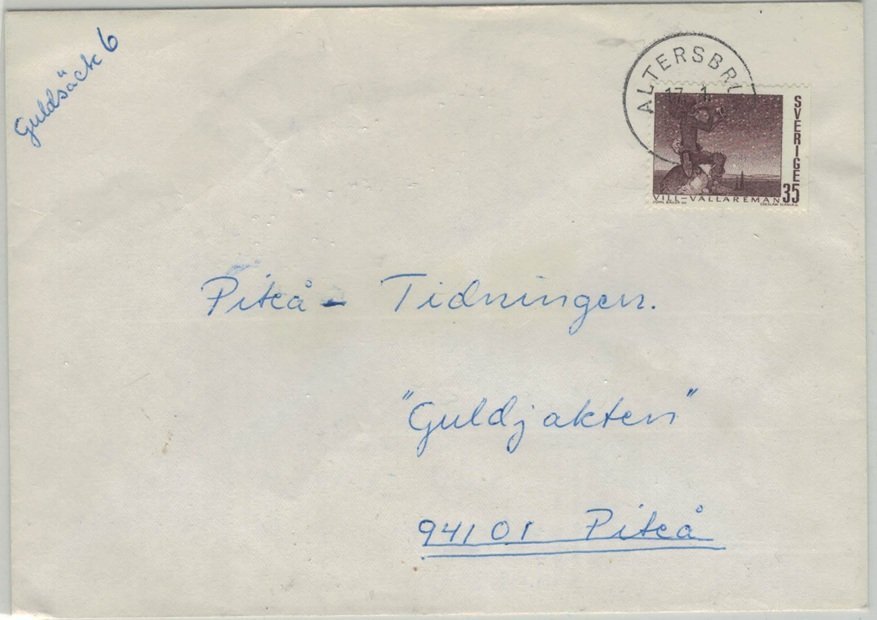 Guldsäck 6
ALTERSBRU
17. 1.
SVERIGE
35
VILL-VALLAREMAN
Piteå - Tidningen.
"Guldjakten"
94101 Piteå